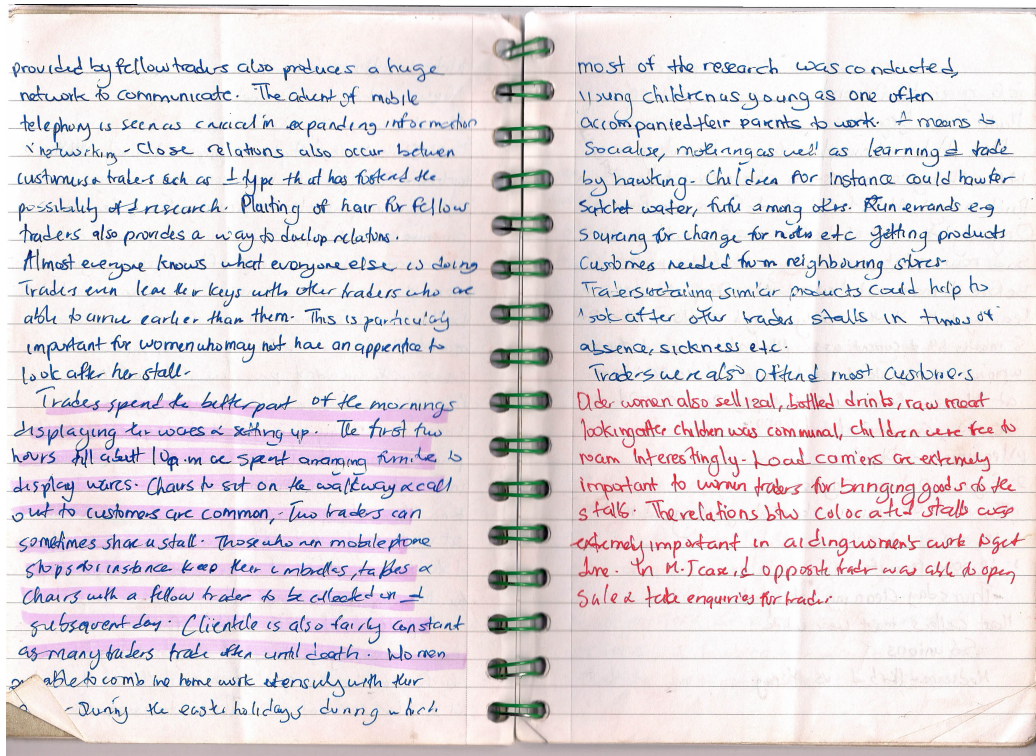 provided by fellow traders also produces a huge
network to communicate. The advent of mobile
telephony is seen as crucial in expanding information
networking - Close relations also occur betwen
customers & traders such as type that has fostered the
possibility of research. Plaiting of hair for fellow
traders also provides a way to develop relations.
Almost everyone knows what everyone else is doing
Traders even leave their keys with other traders who are
able to arrive earlier than them. This is particularly
important for women who may not have an apprentice to
look after her stall.
Traders spend the better part of the mornings
displaying their wares & setting up. The first two
hours till about 10 are spent arranging furniture to
display wares. Chairs to sit on the walkway & call
out to customers are common, Two traders can
sometimes share a stall. Those who run mobile phone
shops for instance keep their umbrellas, tables &
chairs with a fellow trader to be collected on
subsequent day. Clientele is also fairly constant
as many traders trade often until death. Women
able to combine home work with their
- During the easter holidays during which
most of the research was conducted,
young children as young as one often
accompanied their parents to work. means to
Socialise, as well as learning trade
by hawking. Children for instance could hawker
Satchet water, fufu among others. Run errands e.g
sourcing for change for notes etc getting products
Customers needed from neighbouring stores.
Traders retailing similar products could help to
look after other traders stalls in times of
absence, sickness etc.
Traders were also most customers
Older women also sell , bottled drinks, raw meat
looking after children was communal, children were free to
roam interestingly. Load carriers are extremely
important to women traders for bringing goods to the
stalls. The relations btw colocated stalls was
extremely important in aiding women's work to get
done. In M.J case, opposite trader was able to open,
sale & take enquiries for trader